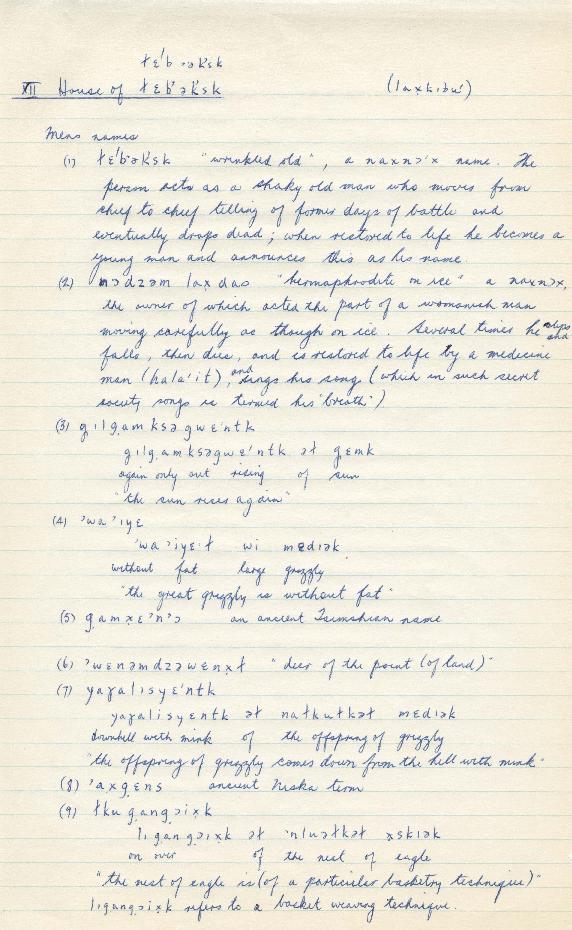 ɫɛ'b·əḱsk
XII House of ɫɛb'əḱsk (laxkɪbu')
Mens names
(1) ɫɛ'b'əḱsk "wrinkled old", a naxnɔ'x name. The
person acts as a shaky old man who moves from
chief to chief telling of former days of battle and
eventually drops dead; when restored to life he becomes a
young man and announces this as his name.
(2) nɔdzəm lax dao "hermaphrodite on ice" a naxnɔx,
the owner of which acted the part of a womanish man
moving carefully as though on ice. Several times he slips and
falls, then dies, and is restored to life by a medicine
man (hala'it), and sings his song (which in such secret
society songs is termed his 'breath')
(3) gɪlgamksəgwɛ'ntk
gɪlgamksəgwɛ'ntk əɫ gɛmk
again only out rising of sun
"the sun rises again"
(4) 'wa'ɪyɛ
'wa'iyɛ·ɫ wi mɛdɪək
without fat large grizzly
"the great grizzly is without fat"
(5) gamxɛ'n'ɔ an ancient Tsimshian name
(6) 'wɛnəmdzəwɛnxɫ "deer of the point (of land)"
(7) yaɣalisyɛ'ntk
yaɣalisyɛntk əɫ naɫkuɫkəɫ mɛdɪək
downhill with mink of the offspring of grizzly
"the offspring of grizzly comes down from the hill with mink"
(8) 'axgɛns ancient Niska term
(9) ɫku gangɔixk
lɪgangɔixk əɫ 'nluəɫkəɫ xskɪək
on over of the nest of eagle
"the nest of eagle is (of a particular basketry technique)"
lɪgangɔixk refers to a basket weaving technique.